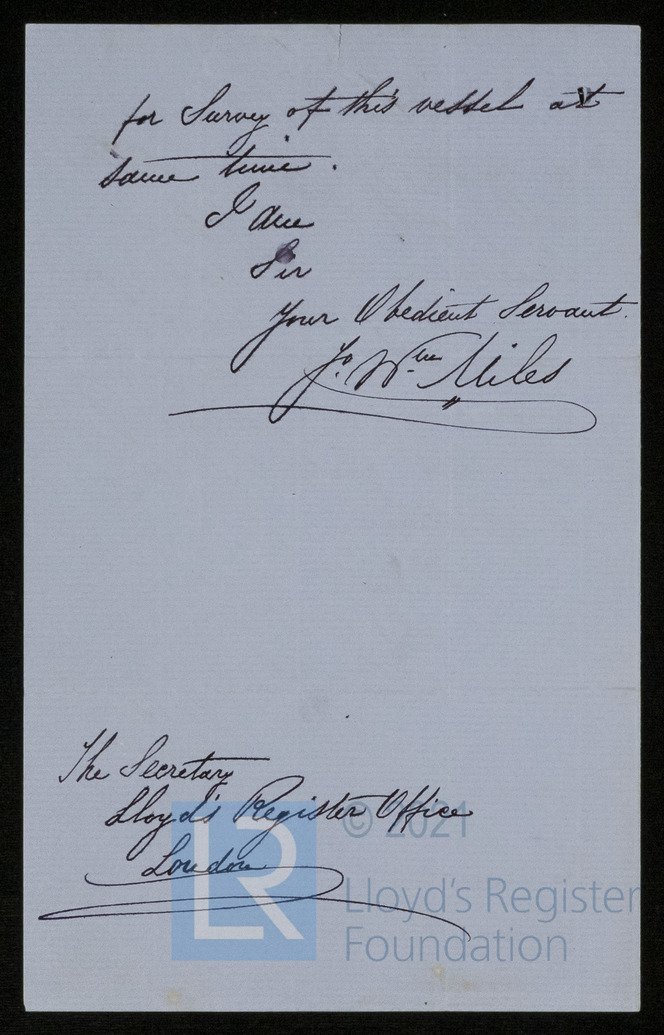 for Survey of this vessel at
same time.
I am
Sir
Your Obedient Servant.
Jo. Wm Miles
The Secretary
Lloyd's Register Office
London
LR
© 2021
Lloyd's Register
Foundation